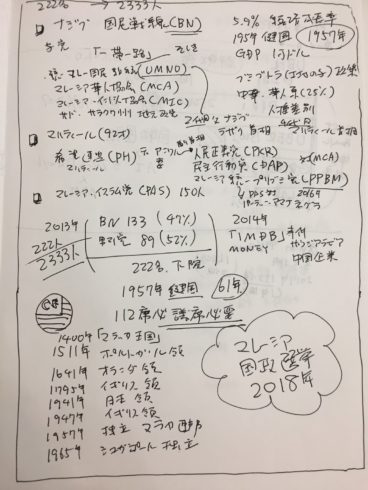 222名 → 2333人
ナジブ 国民戦線(BN)
5.9% 経済成長率
与党 「一帯一路」
1957年 建国 1957年
GDP 1万ドル
(UMNO)
ブミプトラ 政策
マレーシア華人協会(MCA)
中華・華人系(25%)
マレーシア・インド人協会(MIC)
人種差別
サバ サラワク
マハティール(92才)
ラザク首相
マハティール首相
希望連盟(PH)
人民正義党(PKR)
マハティール
民主行動党(DAP)
(MCA)
(PPBM)
マレーシア・イスラム党(PAS) 150人
2013年
BN 133 (47%)
野党 89 (52%)
222人
2333人
222名 下院
2014年
「1MDB」事件
MONEY サウジアラビア
中国企業
1957年 建国 61年
112席必 議席必要
1400年「マラッカ王国」
1511年 ポルトガル領
1641年 オランダ領
1795年 イギリス領
1941年 日本領
1947年 イギリス領
1957年 独立 マラヤ連邦
1965年 シンガポール 独立
マレーシア
国政選挙
2018年